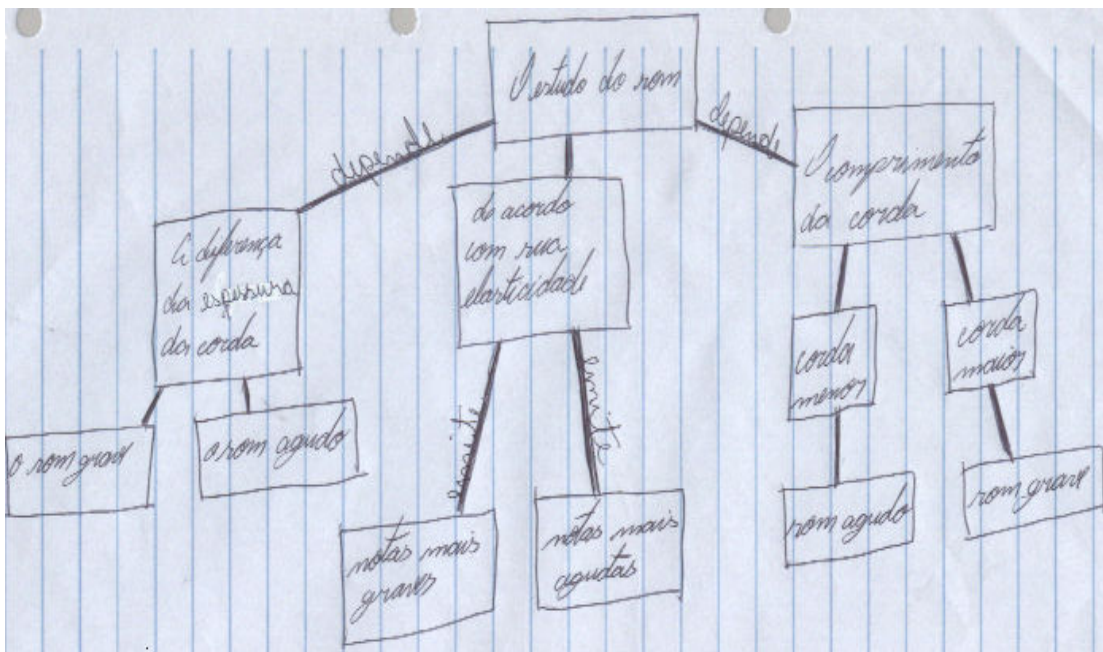 O estudo do som
depende
depende
A diferença
da espessura
da corda
de acordo
com sua
elasticidade
O comprimento
da corda
o som grave
o som agudo
emite
emite
notas mais
graves
notas mais
agudas
corda
menor
corda
maior
som agudo
som grave